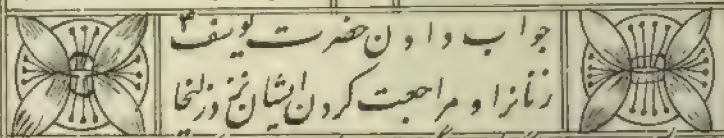 جواب دادن حضرت یوسف ۴
زنانرا و مراجعت کردن ایشان نزد زلیخا